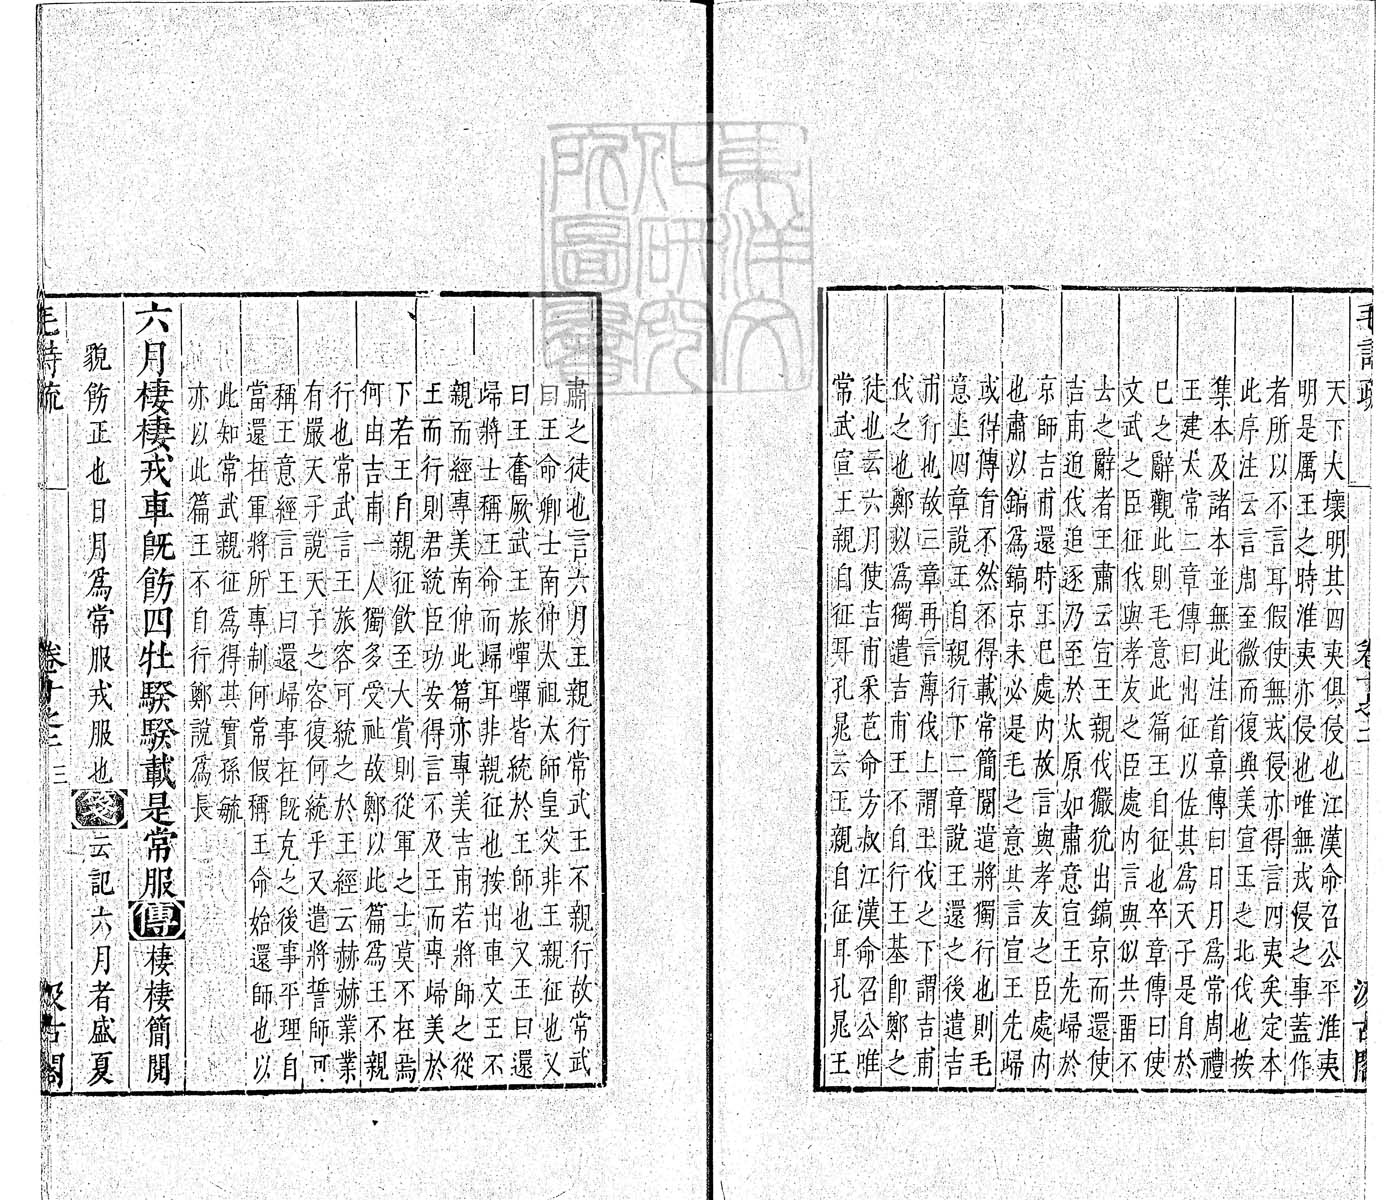 天下大壞明其四夷俱侵也江漢命召公平淮夷
明是厲王之時淮夷亦侵也唯無戎侵之事蓋作
者所以不言耳假使無戎侵亦得言四夷矣定本
此序注云言周至微而復興美宣王之北伐也按
集本及諸本並無此注首章傳曰日月爲常周禮
王建太常二章傳曰出征以佐其爲天子是自於
已之辭觀此則毛意此篇王自征也卒章傳曰使
文武之臣征伐與孝友之臣處内言與似共畱不
去之辭者王肅云宣王親伐玁狁出鎬京而還使
吉甫追伐追逐乃至於太原如肅意宣王先歸於
京師吉甫還時王巳處内故言與孝友之臣處内
也肅以鎬爲鎬京未必是毛之意其言宣王先歸
或得傳旨不然不得載常簡閱遣將獨行也則毛
意上四章說王自親行下二章說王還之後遣吉
甫行也故三章再言薄伐上謂王伐之下謂吉甫
伐之也鄭以爲獨遣吉甫王不自行王基即鄭之
徒也云六月使吉甫采芑命方叔江漢命召公唯
常武宣王親自征耳孔晁云王親自征耳孔晁王
肅之徒也言六月王親行常武王不親行故常武
曰王命卿士南仲太祖太師皇父非王親征也又
曰王奮厥武王旅嘽嘽皆統於王師也又王曰還
歸將士稱王命而歸耳非親征也按出車文王不
親而經專美南仲此篇亦專美吉甫若將師之從
王而行則君統臣功安得言不及王而專歸美於
下若王自親征飲至大賞則從軍之士莫不在焉
何由吉甫一人獨多受祉故鄭以此篇爲王不親
行也常武言王旅容可統之於王經云赫赫業業
有嚴天子說天子之容復何統乎又遣將誓師可
稱王意經言王曰還歸事在旣克之後事平理自
當還在軍將所專制何常假稱王命始還師也以
此知常武親征爲得其實孫毓
亦以此篇王不自行鄭說爲長
六月棲棲戎車旣飭四牡騤騤載是常服傳棲棲簡閱
貌飭正也日月爲常服戎服也箋云記六月者盛夏
毛詩疏 卷十之二 三 汲古閣